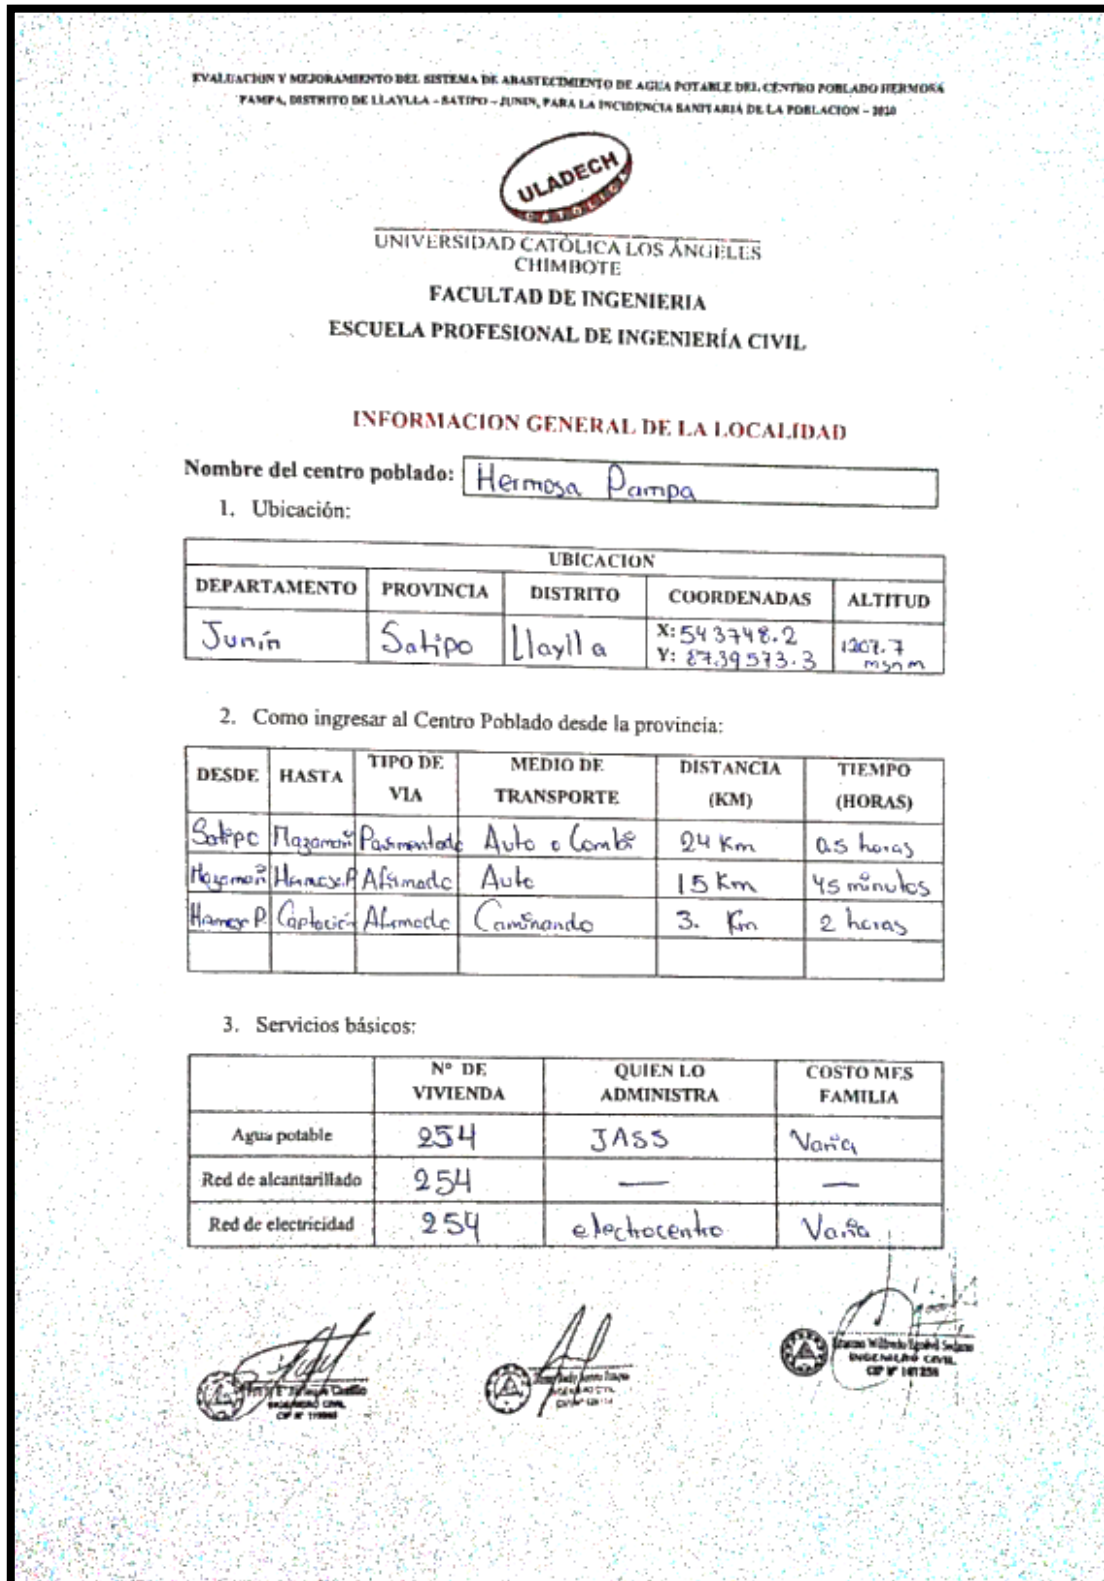 EVALUACION Y MEJORAMIENTO DEL SISTEMA DE ABASTECIMIENTO DE AGUA POTABLE DEL CENTRO POBLADO HERMOSA
PAMPA, DISTRITO DE LLAYLLA – SATIPO – JUNIN, PARA LA INCIDENCIA SANITARIA DE LA POBLACION – 2020
ULADECH
CATOLICA
UNIVERSIDAD CATÓLICA LOS ÁNGELES
CHIMBOTE
FACULTAD DE INGENIERIA
ESCUELA PROFESIONAL DE INGENIERÍA CIVIL
INFORMACION GENERAL DE LA LOCALIDAD
Nombre del centro poblado: Hermosa Pampa
1. Ubicación:
UBICACION
DEPARTAMENTO PROVINCIA DISTRITO COORDENADAS ALTITUD
Junín Satipo Llaylla X: 543748.2 Y: 8739573.3 1207.7 msnm
2. Como ingresar al Centro Poblado desde la provincia:
DESDE HASTA TIPO DE VIA MEDIO DE TRANSPORTE DISTANCIA (KM) TIEMPO (HORAS)
Satipo Mazamari Pavimentado Auto o Combi 24 Km 0.5 horas
Mazamari Hermosa P. Afirmado Auto 15 Km 45 minutos
Hermosa P. Captación Afirmado Caminando 3. Km 2 horas
3. Servicios básicos:
N° DE VIVIENDA QUIEN LO ADMINISTRA COSTO MES FAMILIA
Agua potable 254 JASS Varia
Red de alcantarillado 254 — —
Red de electricidad 254 electrocentro Varia
INGENIERO CIVIL
CIP N°
INGENIERO CIVIL
Wilfredo
INGENIERO CIVIL
CIP N°